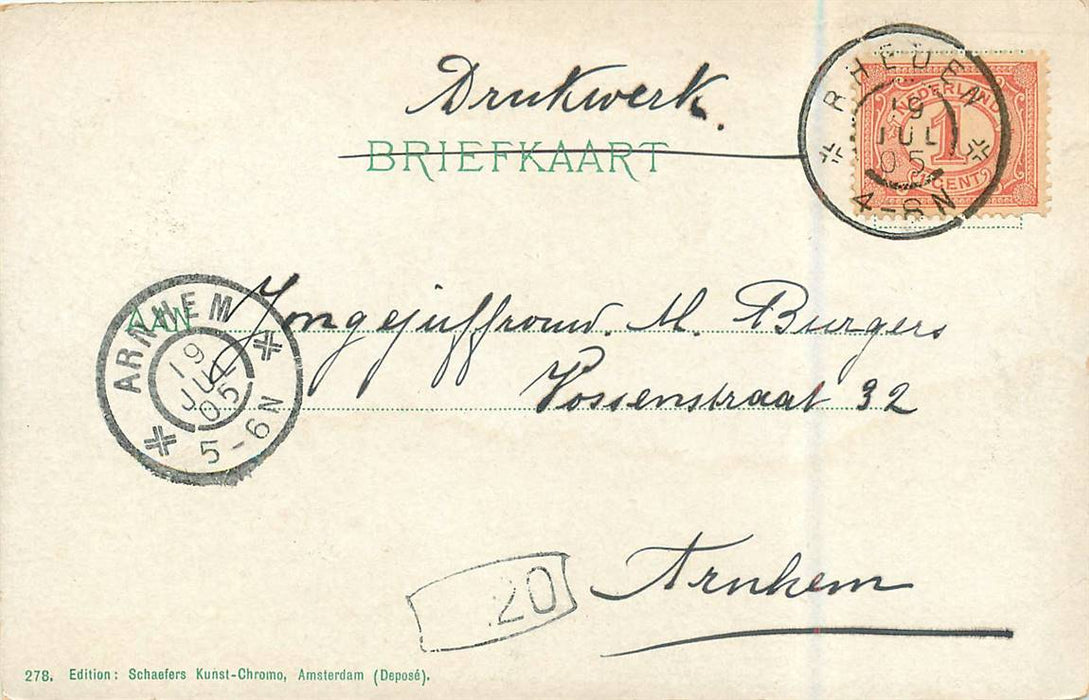 Drukwerk.
BRIEFKAART
RHEDEN
19
JUL
05
4-8N
NEDERLAND
1
CENT
AAN
Jongejuffrouw. M. Burgers
ARNHEM
19
JUL
05
5-6N
Vossenstraat 32
Arnhem
20
278. Edition: Schaefers Kunst-Chromo, Amsterdam (Deposé).